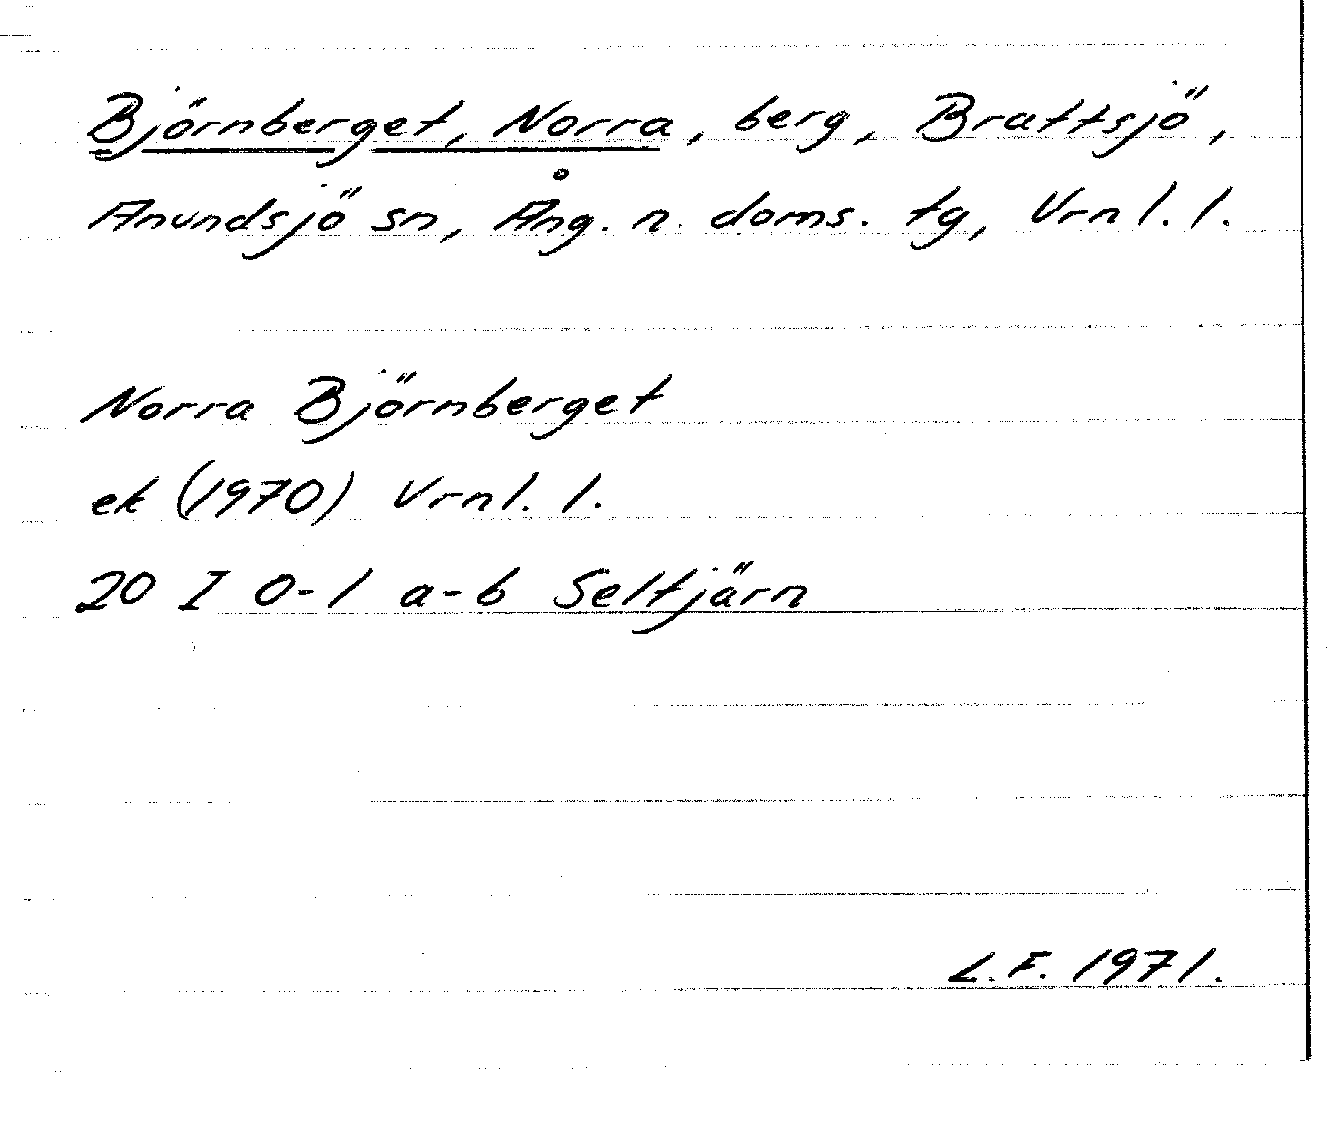 Björnberget, Norra, berg, Brattsjö,
Anundsjö sn, Ång. n. doms. tg, Vrnl. l.
Norra Björnberget
ek (1970) Vrnl. l.
20 I 0-1 a-b Seltjärn
L.F. 1971.